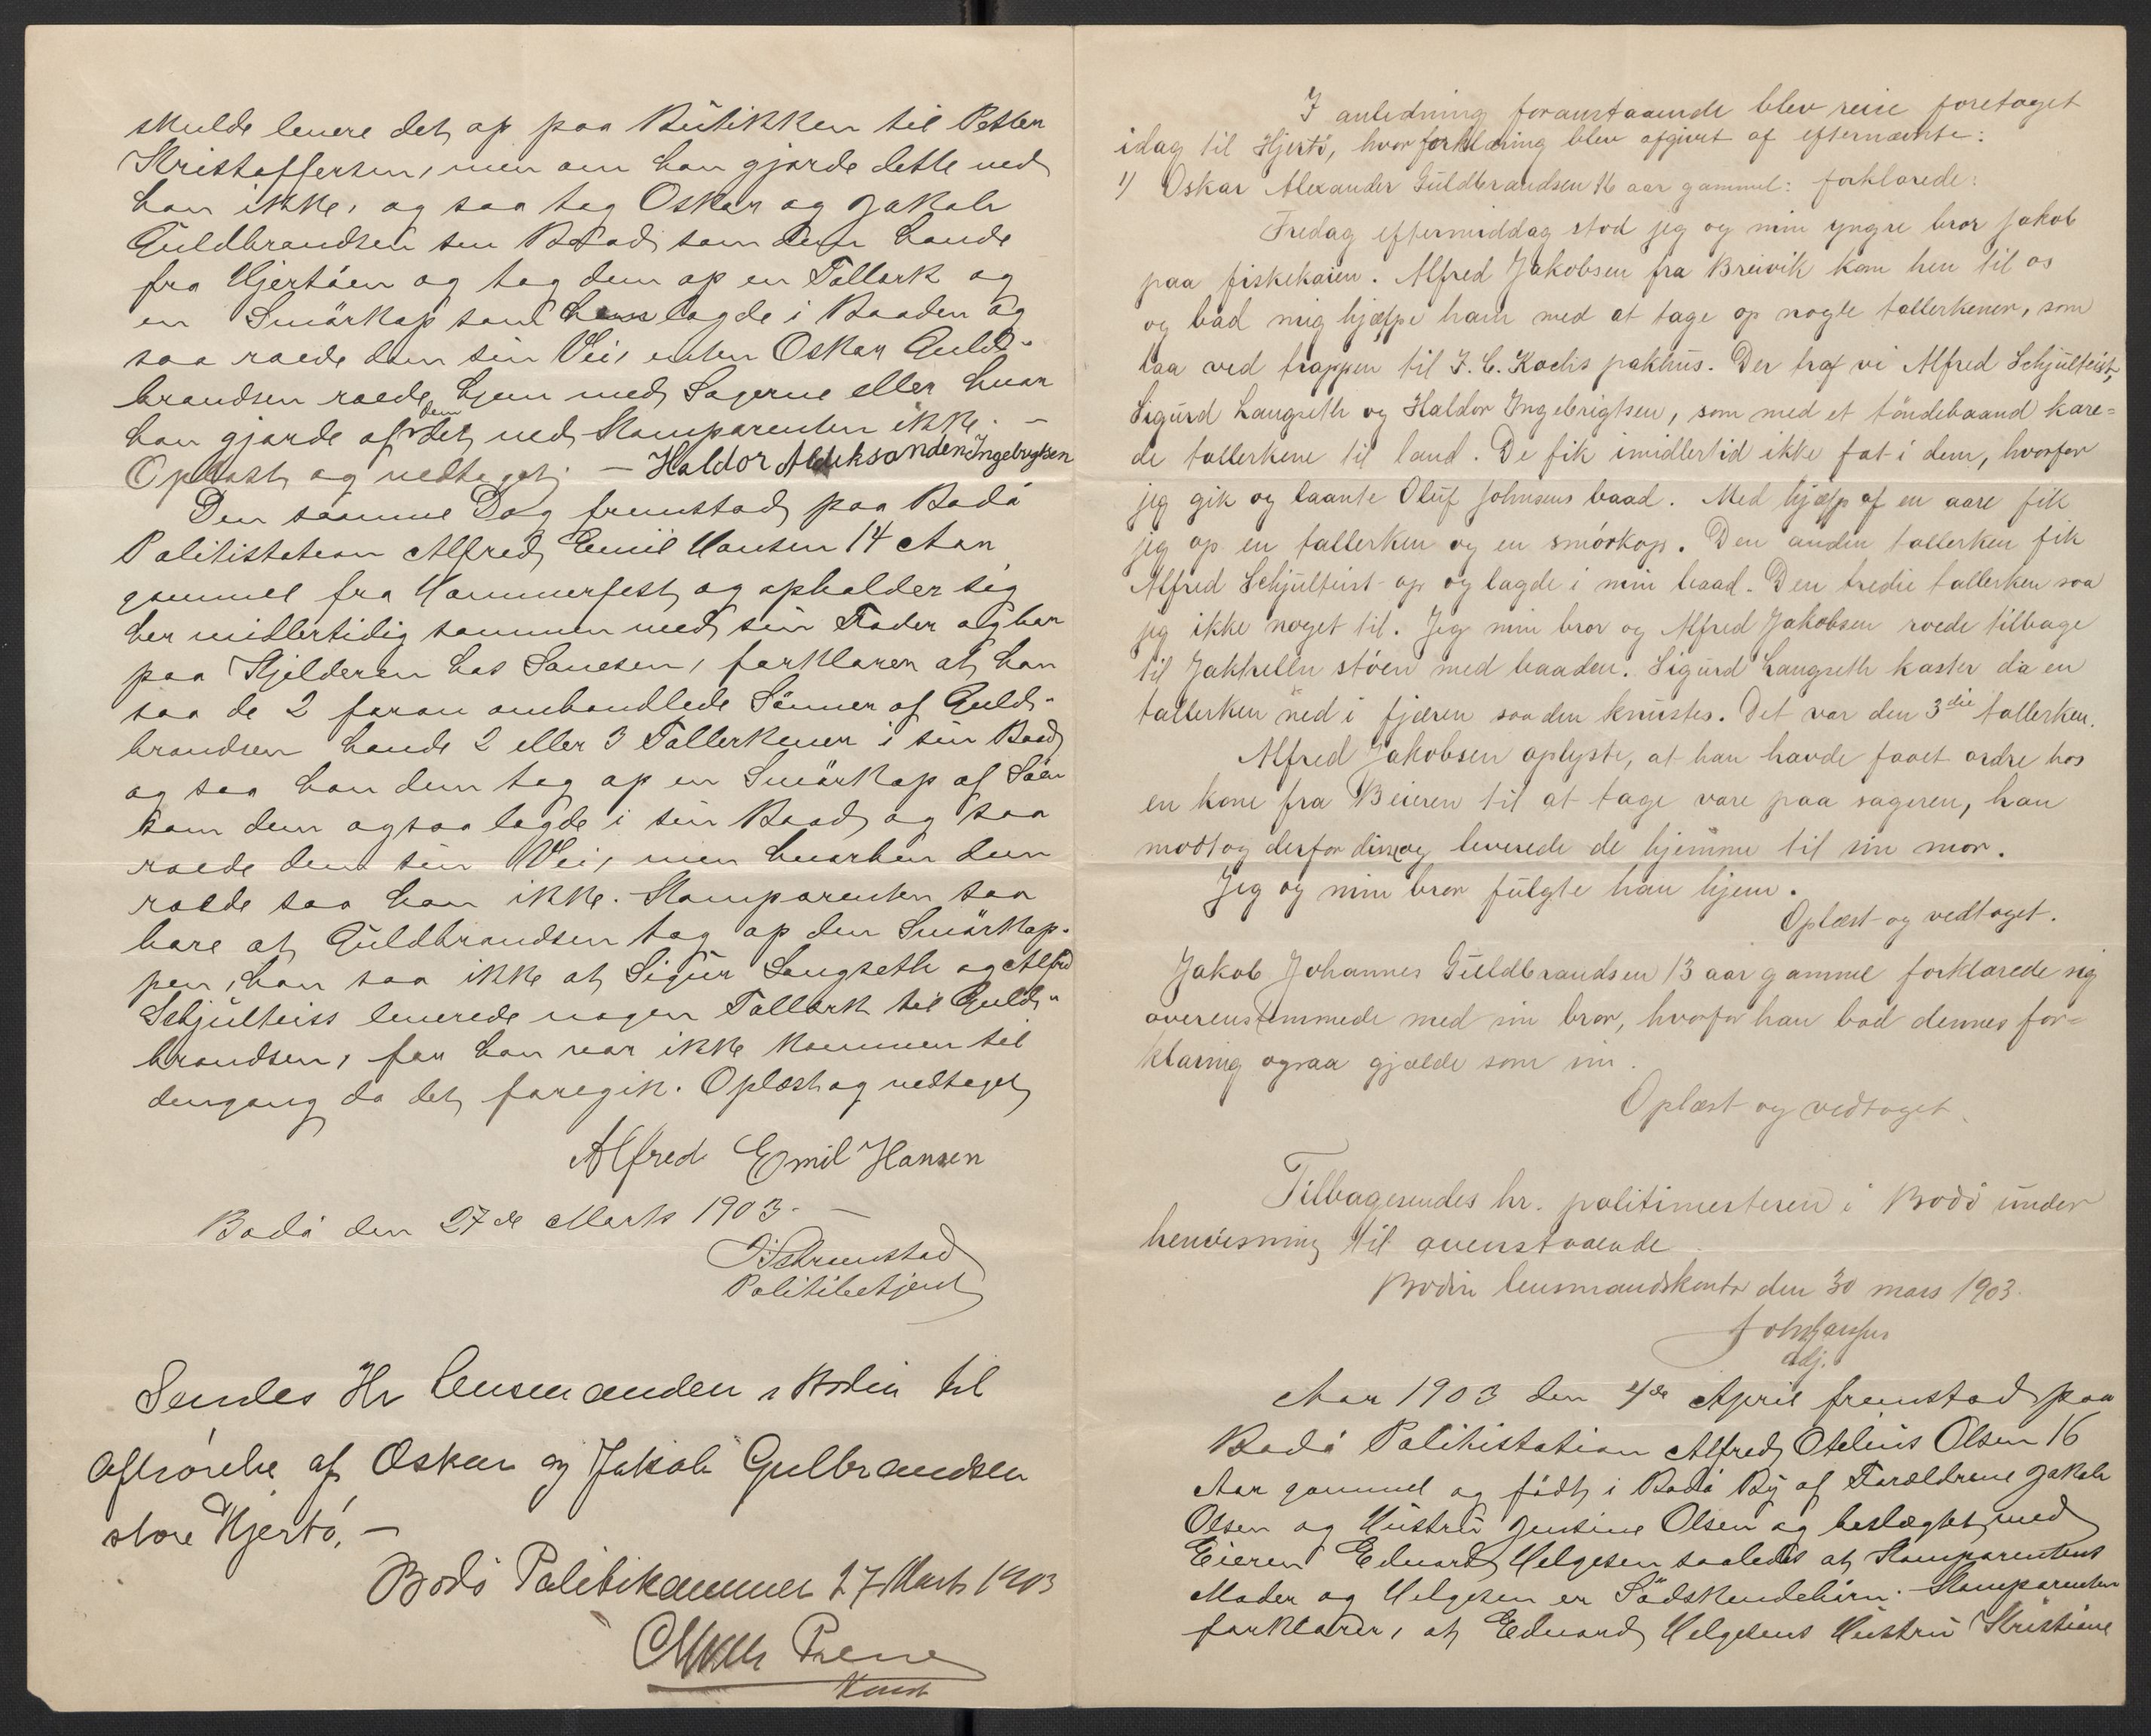 skulde levere det op paa Butikken til Petter
Kristoffersen, men om han gjorde dette ved
han ikke, og saa tog Oskar og Jakob
Guldbrandsen sin Baad som dem havde
fra Hjertøen og tog dem op en Tallark og
en Smørkop som lagde i Baaden og
saa roede dem sin Vei, enten Oskar Guld-
brandsen roede hjem med Sagerne eller hvor
han gjorde af dem det ved Komparenten ikke. —
Oplæst og vedtaget. — Haldor Aleksandersen Ingebrigtsen
Den samme Dag fremstod paa Bodø
Politistation Alfred Emil Hansen 14 Aar
gammel fra Hammerfest og opholder sig
her midlertidig sammen med sin Fader og bor
paa Kjelderen hos, forklarer at han
saa de 2 foran omhandlede Sønner af Guld-
brandsen havde 2 eller 3 Tallerkener i sin Baad
og saa han dem tog op en Smørkop af Søen
som dem ogsaa lagde i sin Baad og saa
roede dem sin Vei, men hvorhen dem
roede saa han ikke. Komparenten saa
bare at Guldbrandsen tog op den Smørkop-
pen, han saa ikke at Sigur Langseth og Alfred
Schjulteiss leverede nogen Tallark til Guld-
brandsen, for han var ikke kommen til
dengang da det foregik. Oplæst og vedtaget
Alfred Emil Hansen
Bodø den 27de Marts 1903. —
Politibetjent
Sendes Hr Lensmanden i Bodin til
afhørelse af Oskar og Jakob Gulbrandsen
store Hjertø. —
Bodø Politikammer 27 Marts 1903
Konst
I anledning foranstaaende blev reise foretaget
idag til Hjertø, hvor forklaring blev afgivet af efternævnte:
1) Oskar Alexander Guldbrandsen 16 aar gammel: forklarede:
Fredag eftermiddag stod jeg og min yngre bror Jakob
paa fiskekaien. Alfred Jakobsen fra Breivik kom hen til os
og bad mig hjælpe ham med at tage op nogle tallerkener, som
laa ved trappen til J. C. Kochs pakhus. Der traf vi Alfred Schjulteist,
Sigurd Langseth og Haldor Ingebrigtsen, som med et tøndebaand kare-
de tallerkene til land. De fik imidlertid ikke fat i dem, hvorfor
jeg gik og laante Oluf Johnsens baad. Med hjælp af en aare fik
jeg op en tallerken og en smørkop. Den anden tallerken fik
Alfred Schjulteist op og lagde i min baad. Den tredie tallerken saa
jeg ikke noget til. Jeg min bror og Alfred Jakobsen roede tilbage
til støen med baaden. Sigurd Langseth kaster da en
tallerken ned i fjæren saa den knustes. Det var den 3die tallerken.
Alfred Jakobsen oplyste, at han havde faaet ordre hos
en kone fra Beieren til at tage vare paa sagerne, han
modtog derfor disse og leverede de hjemme til sin mor.
Jeg og min bror fulgte han hjem.
Oplæst og vedtaget.
Jakob Johannes Guldbrandsen 13 aar gammel forklarede sig
overenstemmede med sin bror, hvorfor han bad dennes for-
klaring ogsaa gjælde som sin.
Oplæst og vedtaget.
Tilbagesendes hr. politimesteren i Bodø under
henvisning til ovenstaaende.
Bodin lensmandskontor den 30 mars 1903.
adj.
Aar 1903 den 4de April fremstod paa
Bodø Politistation Alfred Otelius Olsen 16
Aar gammel og født i Bodø By af Forældrene Jakob
Olsen og Hustru Jensine Olsen og beslægtet med
Eieren Edvard Helgesen saaledes at Komparentens
Moder og Helgesen er Sødskendebørn. Komparenten
forklarer, at Edvard Helgesens Hustru Kristiane